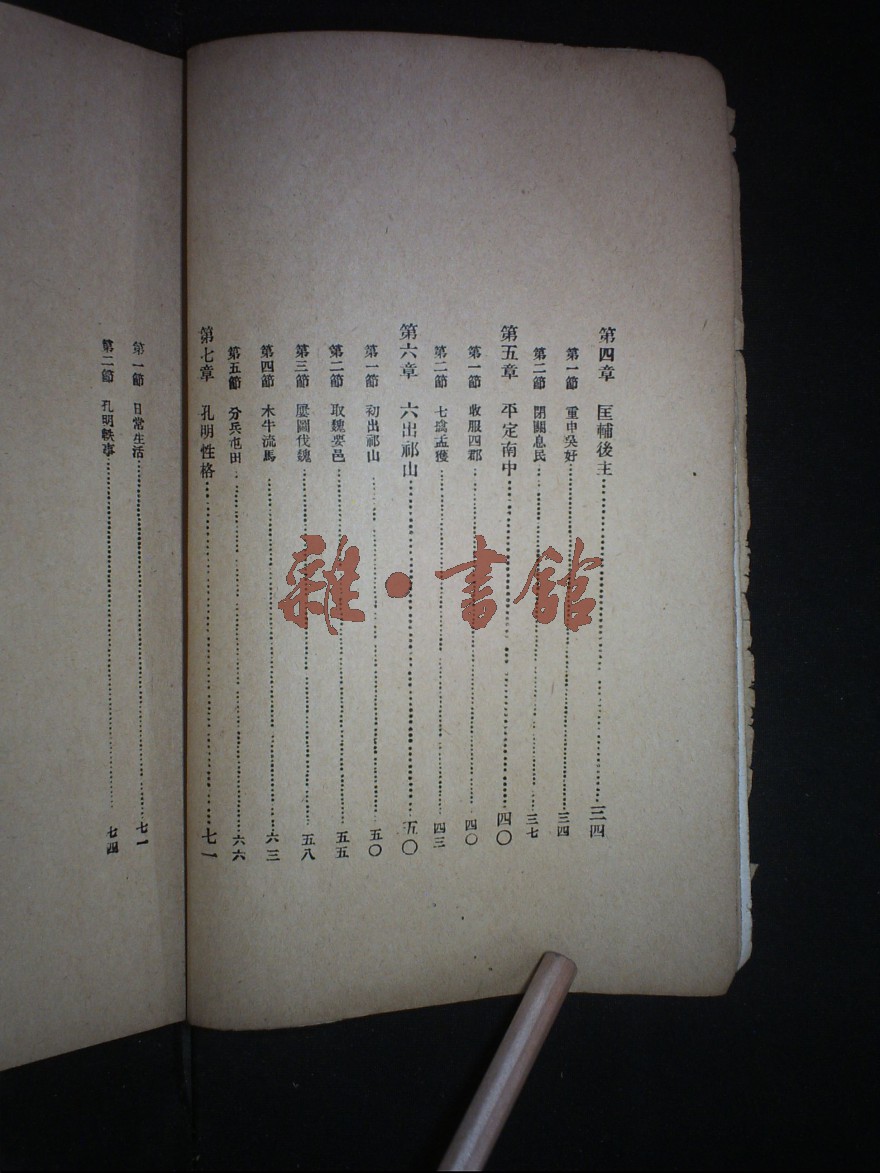 第四章 匡輔後主……三四
第一節 重申吳好……三四
第二節 閉關息民……三七
第五章 平定南中……四〇
第一節 收服四郡……四〇
第二節 七擒孟獲……四三
第六章 六出祁山……五〇
第一節 初出祁山……五〇
第二節 取魏要邑……五五
第三節 屢圖伐魏……五八
第四節 木牛流馬……六三
第五節 分兵屯田……六六
第七章 孔明性格……七一
第一節 日常生活……七一
第二節 孔明軼事……七四
雜·書館